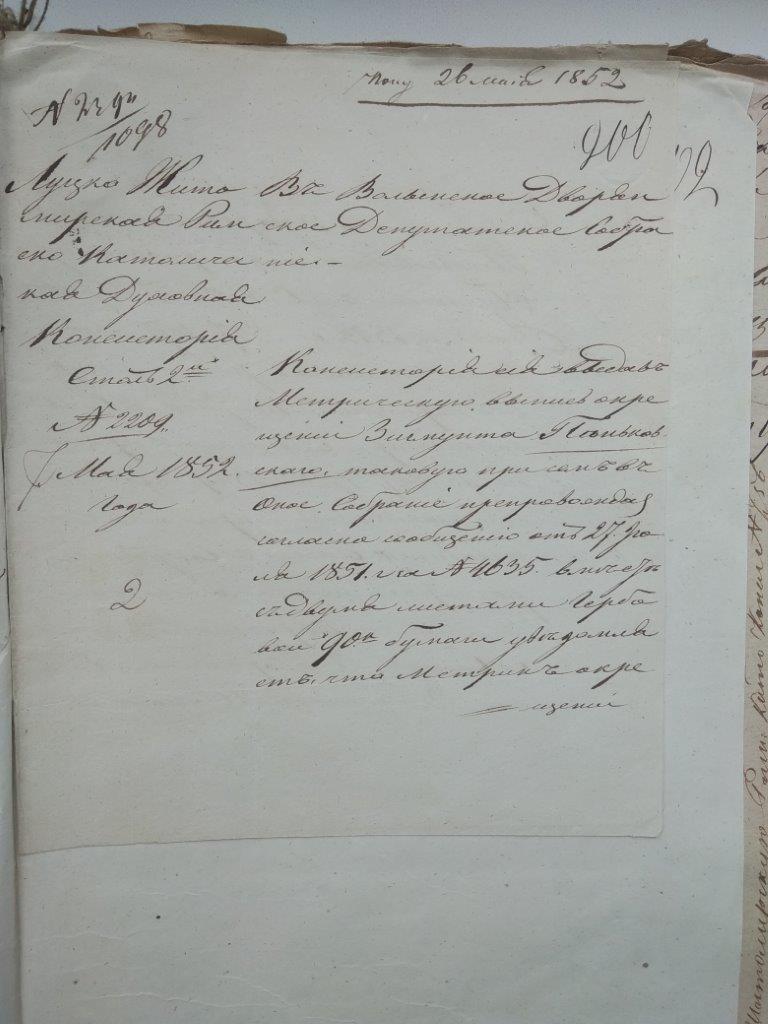 Полу 26 мая 1852
N 2394
1098
900
92
Луцко Жито
мирская Рим
ско Католичес
кая Духовная
Консисторія
Столъ 2й
N 2209.
7 Мая 1852.
Года
2
Въ Волынское Дворян
ское Депутатское Собра
ніе.
Консисторія сія выдавъ
Метрическую выпись о кре
щеніи Зигмунта Паньков
скаго, таковую при семъ въ
Оное Собраніе препровождая
согласно сообщенію отъ 27. Ію
ля 1851. за N 4635. вмѣстѣ
съ двумя листами Гербо
вой 90 к бумаги увѣдомля
етъ, что Метрикъ о кре
щеніи